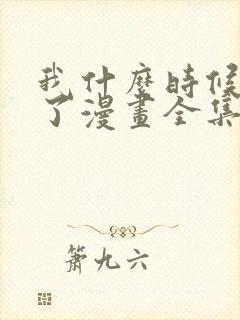 我什麼時候
了漫畫全集
簫九六